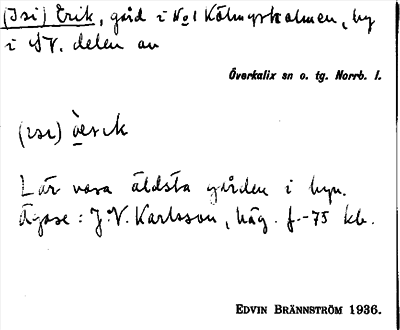 (Isi) Erik, gård i No 1 Kölmyrholmen, by
i SV. delen av
Överkalix sn o. tg. Norrb. l.
Lär vara äldsta gården i byn.
Ägare: J.V. Karlsson, häg. f.-75 kb.
EDVIN BRÄNNSTRÖM 1936.